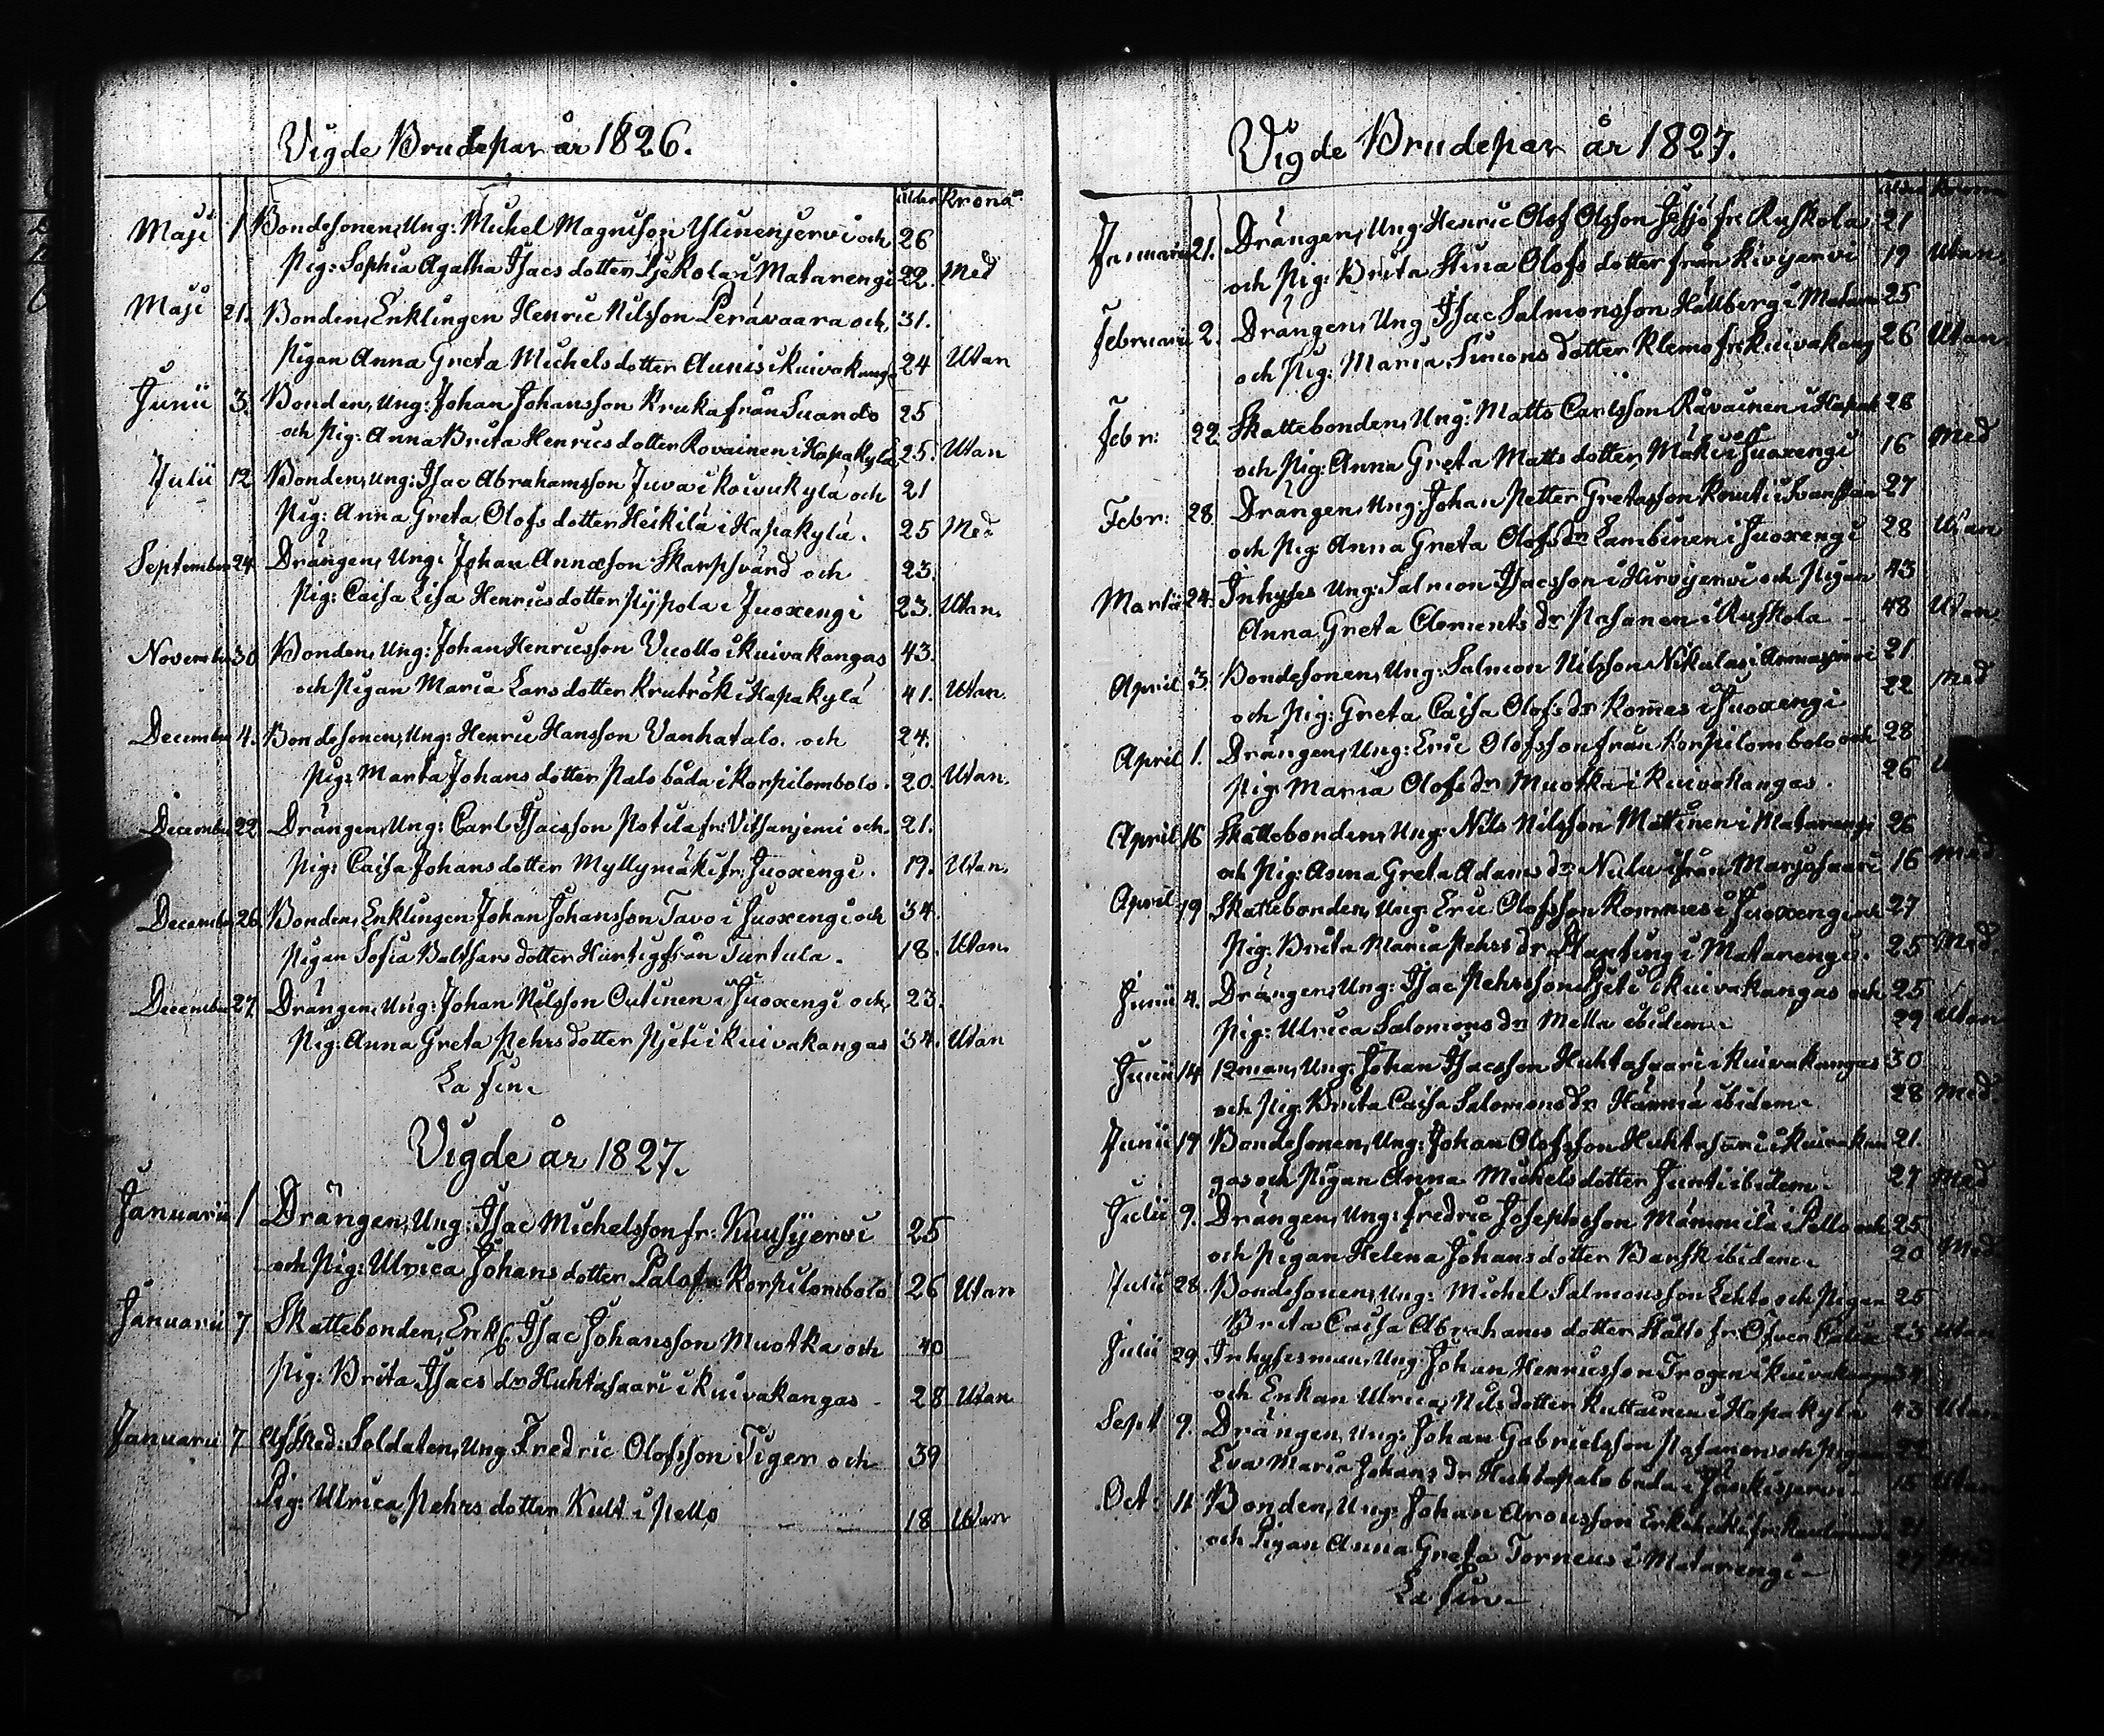 Vigde Brudepar år 1826.
ålder Krona
Maji 1 Bondesonen, Ung: Michel Magnusson Ylinenjervi och 26
Pig: Sophia Agatha Isacs dotter i Matarengi 22. Med
Maji 21. Bonden, Enklingen Henric Nilsson Perävaara och 31.
Pigan Anna Greta Michels dotter Aunis i Kuivakang. 24 Utan
Junii 3. Bonden, Ung: Johan Johansson Kruka från Luando 25
och Pig: Anna Brita Henricsdotter Rovainen i Hapakylä 25. Utan
Julii 12 Bonden, Ung: Isac Abrahamsson Juva i Koivukylä och 21
Pig: Anna Greta Olofs dotter Heikilä i Hapakylä. 25 Med
September 24. Drängen, Ung: Johan Annæson Skarpsvärd och 23.
Pig: Caisa Lisa Henricsdotter Pypola i Juoxengi 23. Utan.
November 30 Bonden, Ung: Johan Henricsson Vuollo i Kuivakangas 43.
och Pigan Maria Lars dotter Krutrök i Hapakylä 41. Utan.
December 4. Bondesonen, Ung: Henric Hansson Vanhatalo. och 24.
Pig: Marta Johans dotter Palo båda i Korpilombolo. 20. Utan.
December 22. Drängen, Ung: Carl Isacsson Potila fr: och 21.
Pig: Caisa Johansdotter Myllymäki fr: Juoxengi. 19. Utan.
December 26. Bonden, Enklingen Johan Johansson Tavo i Juoxengi och 34.
Pigan Sofia Balthsars dotter Hurtig från Turtula. 18. Utan.
December 27. Drängen, Ung: Johan Nilsson Outinen i Juoxengi och 23.
Pig: Anna Greta Pehrs dotter Pjeti i Kuivakangas 34. Utan
La fin.
Vigde år 1827.
Januarii 1 Drängen, Ung: Isac Michelsson fr: Kuusijervi 25
och Pig: Ulrica Johans dotter Palo fr Korpilombolo 26 Utan
Januarii 7 Skattebonden, Enkl. Isac Johansson Muotka och 40
Pig: Brita Isacs dr Huhtasaari i Kuivakangas 28 Utan
Januarii 7 Afsked: Soldaten, Ung Fredric Olofsson Tiger och 39
Pig: Ulrica Pehrs dotter Kult i Pello 18 Utan
Vigde Brudepar år 1827.
Januarii 21. Drängen, Ung: Henric Olof Olsson fr: Ruskola 21
och Pig: Brita Stina Olofs dotter från Kivijervi 19 Utan.
Februarii 2. Drängen, Ung Isac Salmonsson Hällberg i Matar 25
och Pig: Maria Simons dotter Klemo fr: Kuivakang 26 Utan.
Febr: 22 Skattebonden, Ung: Matts Carlsson Råvainen i Hapak 28
och Pig: Anna Greta Matts dotter Mäki i Juoxengi 16 Med
Febr: 28 Drängen, Ung: Johan Petter Gretasson Knuti i Svanstan 27
och Pig Anna Greta Olofs dr Lambinen i Juoxengi 28 Utan
Martii 24. Inhyses Ung: Salmon Isacsson i Hirvijervi och Pigan 43
Anna Greta Clements dr Pasanen i Ruskola 48 Utan
April 3. Bondesonen, Ung: Salmon Nilsson Nikulas i Armasjervi 21
och Pig: Greta Caisa Olofs dr Komes i Juoxengi 22 Med
April 1. Drängen, Ung: Eric Olofsson från Korpilombolo och 28
Pig: Maria Olofs dr Muotka i Kuivakangas. 26
April 16 Skattebonden, Ung: Nils Nilsson Mattinen i Matarengi 26
och Pig: Anna Greta Adams dr Nulu ifrån Marjosaari 16 Med
April 19 Skattebonden, Ung: Eric Olofsson Kommes i Juoxengi och 27
Pig: Brita Maria Pehrs dr Planting i Matarengi. 25 Med.
Junii 4. Drängen, Ung: Isac Pehrsson Pjeti i Kuivakangas och 25
Pig: Ulrica Salomons dr Mella ibidem. 29 Utan
Junii 14 12man, Ung: Johan Isacsson Huhtasaari i Kuivakangas 30
och Pig: Brita Caisa Salomons dr Hannä ibidem. 28 Med.
Junii 17 Bondesonen, Ung: Johan Olofsson Huhtasaari i Kuivakan 21.
gas och Pigan Anna Michels dotter Junti ibidem. 27 Med
Julii 9. Drängen, Ung: Fredric Josephsson Mämmilä i Pello och 25
och Pigan Helena Johans dotter Barsk ibidem. 20 Med.
Julii 28. Bondesonen, Ung: Michel Salmonsson Lehto och Pigan 25
Brita Caisa Abrahams dotter fr Öfver Calix 23 Utan
Julii 29. Inhysesman, Ung: Johan Henricsson Trogen i Kuivakangas 34
och Enkan Ulrica Nils dotter Kuttainen i Hapakylä 43 Utan
Sept 9. Drängen, Ung: Johan Gabrielsson Pasanen och Pigan 22
Eva Maria Johans dr Huhtapalo båda i 15 Utan
Oct: 11. Bonden, Ung: Johan Aronsson 21
och Pigan Anna Greta Torneus i Matarengi 27 Med
La fin.